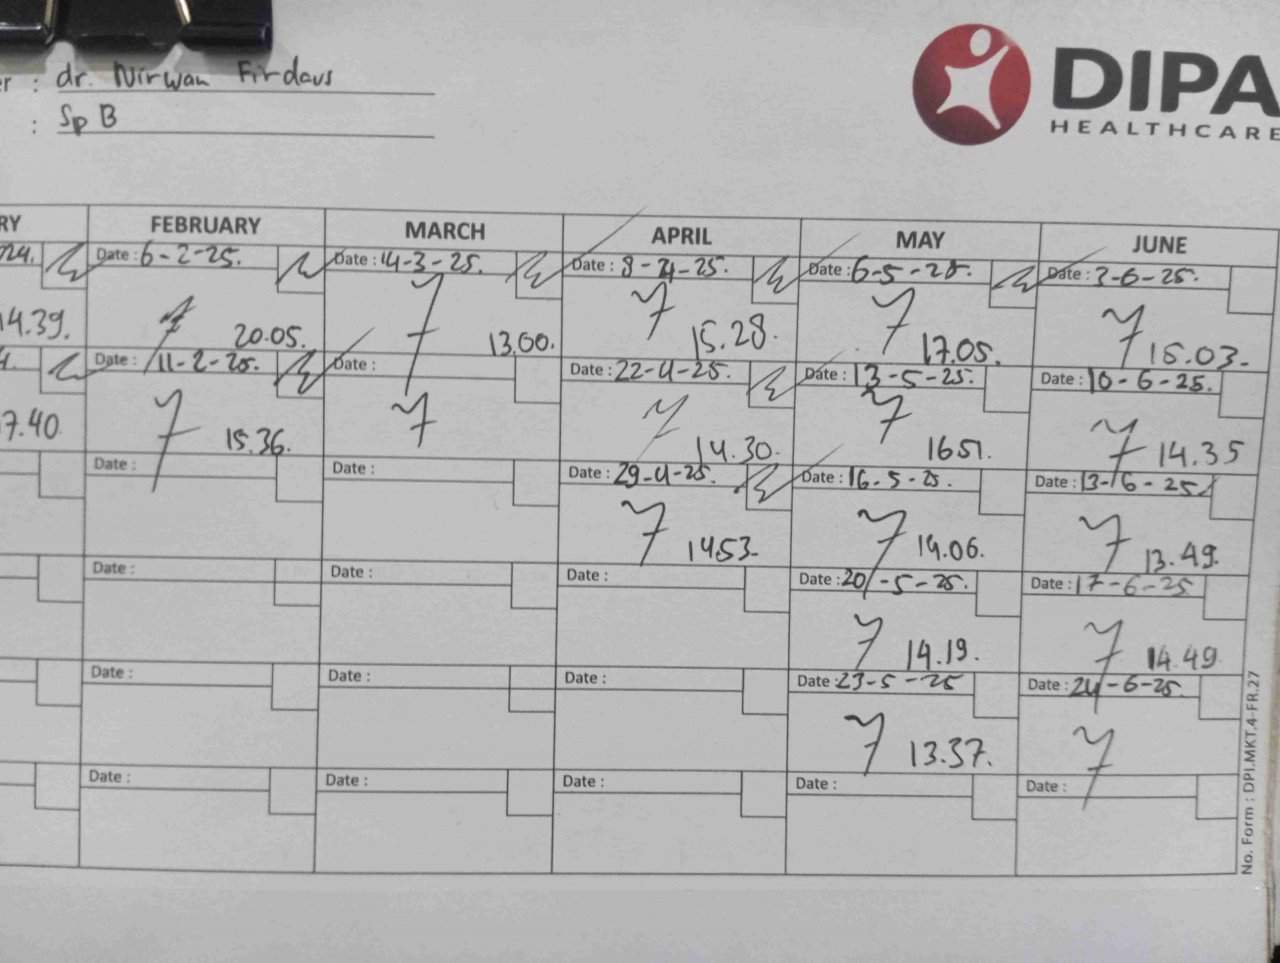 er : dr. Nirwan Firdaus
: Sp B
DIPA
HEALTHCARE
RY FEBRUARY MARCH APRIL MAY JUNE
024. Date : 6-2-25. Date : 14-3-25. Date : 8-4-25. Date : 6-5-25. Date : 3-6-25.
14.39. 20.05. 13.00. 15.28. 17.05. 15.03.
4. Date : 11-2-25. Date : Date : 22-4-25. Date : 13-5-25. Date : 10-6-25.
17.40 15.36. 14.30. 1651. 14.35
Date : Date : Date : 29-4-25. Date : 16-5-25. Date : 13-6-25
1453- 14.06. 13.49.
Date : Date : Date : Date : 20-5-25. Date : 17-6-25
14.19. 14.49.
Date : Date : Date : Date : 23-5-25 Date : 24-6-25.
13.37.
Date : Date : Date : Date : Date :
No. Form : DPI.MKT.4-FR.27